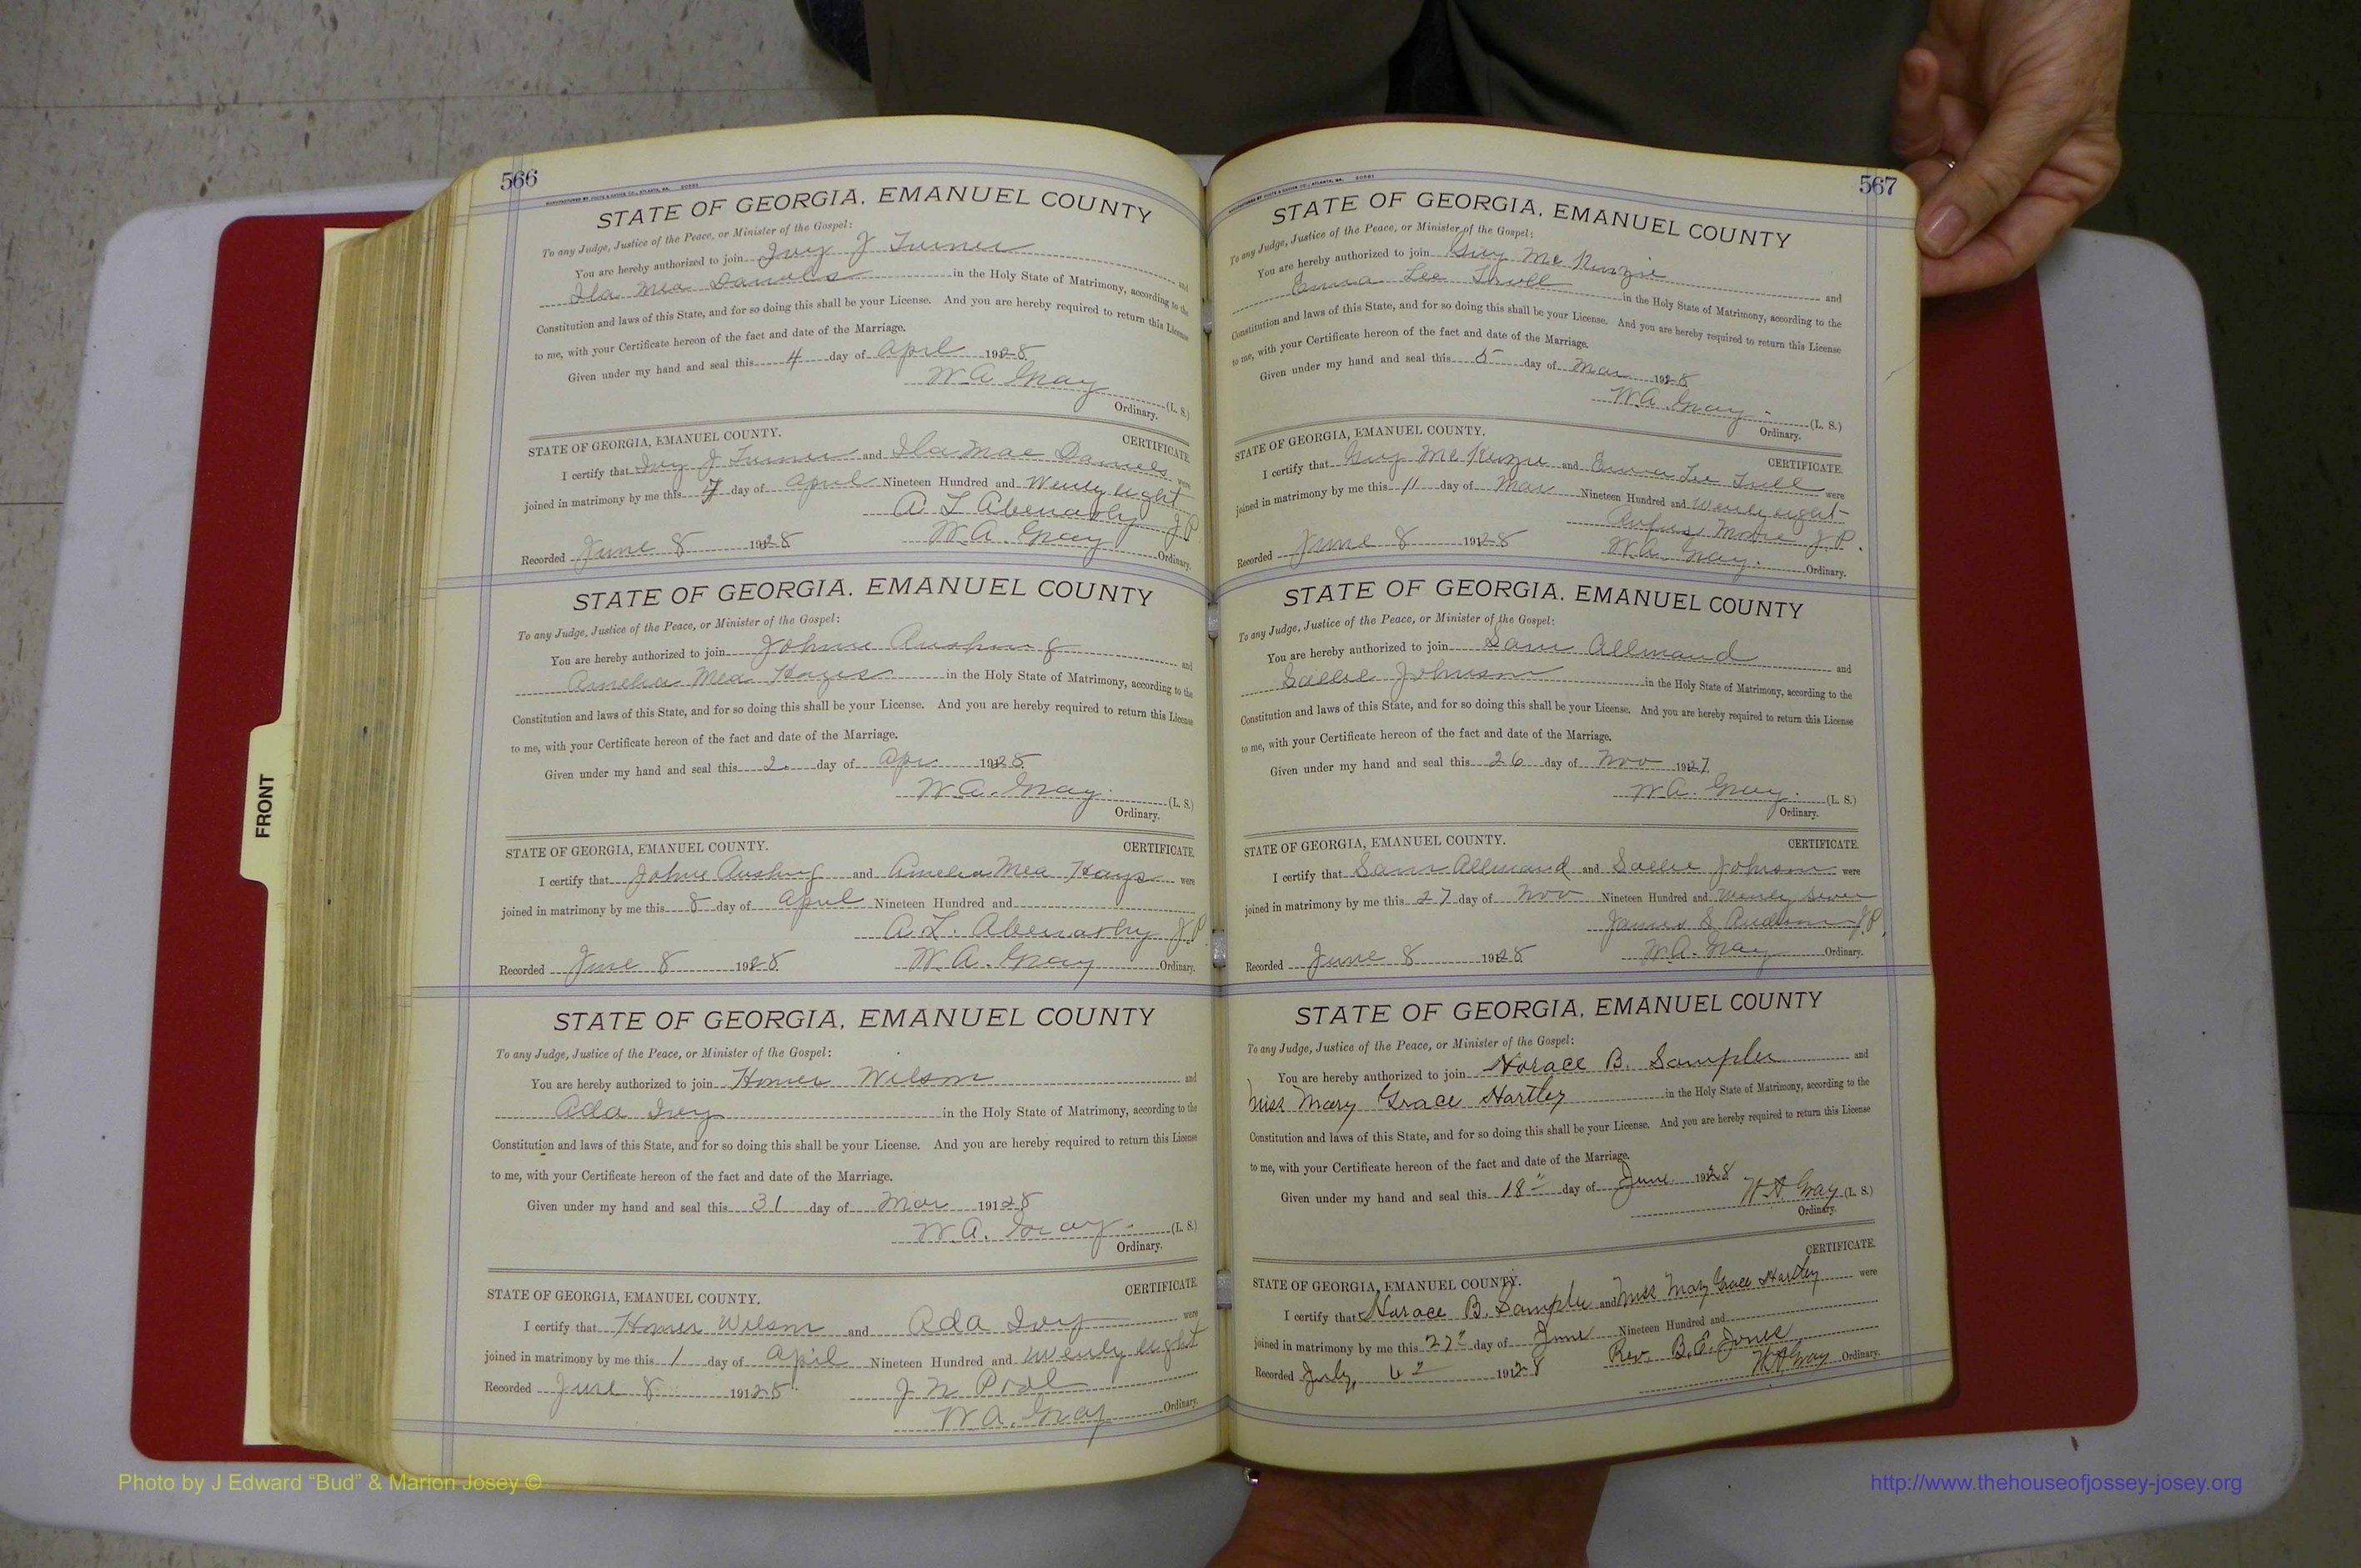 566
STATE OF GEORGIA, EMANUEL COUNTY
To any Judge, Justice of the Peace, or Minister of the Gospel:
You are hereby authorized to join Ivy J Turner and
Ila Mea Daniels in the Holy State of Matrimony, according to the
Constitution and laws of this State, and for so doing this shall be your License. And you are hereby required to return this License
to me, with your Certificate hereon of the fact and date of the Marriage.
Given under my hand and seal this 4 day of April 1928
W.A. Gray (L. S.)
Ordinary.
STATE OF GEORGIA, EMANUEL COUNTY. CERTIFICATE.
I certify that Ivy J Turner and Ila Mae Daniels were
joined in matrimony by me this day of April Nineteen Hundred and Twenty eight
A L J P
Recorded June 8 1928 W.A. Gray Ordinary.
STATE OF GEORGIA. EMANUEL COUNTY
To any Judge, Justice of the Peace, or Minister of the Gospel:
You are hereby authorized to join Johnie and
Amelia Mea Hayes in the Holy State of Matrimony, according to the
Constitution and laws of this State, and for so doing this shall be your License. And you are hereby required to return this License
to me, with your Certificate hereon of the fact and date of the Marriage.
Given under my hand and seal this 2. day of Apr 1928
W.A. Gray. (L. S.)
Ordinary.
STATE OF GEORGIA, EMANUEL COUNTY. CERTIFICATE.
I certify that Johnie and Amelia Mea Hays were
joined in matrimony by me this 8 day of April Nineteen Hundred and
A.L. J P
Recorded June 8 1928 W.A. Gray Ordinary.
STATE OF GEORGIA, EMANUEL COUNTY
To any Judge, Justice of the Peace, or Minister of the Gospel:
You are hereby authorized to join Homer Wilson and
Ada Ivey in the Holy State of Matrimony, according to the
Constitution and laws of this State, and for so doing this shall be your License. And you are hereby required to return this License
to me, with your Certificate hereon of the fact and date of the Marriage.
Given under my hand and seal this 31 day of Mar 19128
W.A. Gray. (L. S.)
Ordinary.
CERTIFICATE.
STATE OF GEORGIA, EMANUEL COUNTY.
I certify that Homer Wilson and Ada Ivy were
joined in matrimony by me this 1 day of April Nineteen Hundred and Twenty eight
Recorded June 8 19128 J N
W.A. Gray Ordinary.
567
STATE OF GEORGIA, EMANUEL COUNTY
To any Judge, Justice of the Peace, or Minister of the Gospel:
You are hereby authorized to join Guy McKenzie and
Emma Lee in the Holy State of Matrimony, according to the
Constitution and laws of this State, and for so doing this shall be your License. And you are hereby required to return this License
to me, with your Certificate hereon of the fact and date of the Marriage.
Given under my hand and seal this 5 day of Mar 1928
W.A. Gray. (L. S.)
Ordinary.
STATE OF GEORGIA, EMANUEL COUNTY. CERTIFICATE.
I certify that Guy McKenzie and Emma Lee were
joined in matrimony by me this 11 day of Mar Nineteen Hundred and Twenty eight
Moore J P.
Recorded June 8 1928 W.A. Gray. Ordinary.
STATE OF GEORGIA. EMANUEL COUNTY
To any Judge, Justice of the Peace, or Minister of the Gospel:
You are hereby authorized to join Sam Allmand and
Sallie Johnson in the Holy State of Matrimony, according to the
Constitution and laws of this State, and for so doing this shall be your License. And you are hereby required to return this License
to me, with your Certificate hereon of the fact and date of the Marriage.
Given under my hand and seal this 26 day of Nov 1927
W.A. Gray. (L. S.)
Ordinary.
STATE OF GEORGIA, EMANUEL COUNTY. CERTIFICATE.
I certify that Sam Allmand and Sallie Johnson were
joined in matrimony by me this 27 day of Nov Nineteen Hundred and Twenty Seven
James S. J.P.
Recorded June 8 1928 W.A. Gray Ordinary.
STATE OF GEORGIA, EMANUEL COUNTY
To any Judge, Justice of the Peace, or Minister of the Gospel:
You are hereby authorized to join Horace B. Sample and
Miss Mary Grace Hartley in the Holy State of Matrimony, according to the
Constitution and laws of this State, and for so doing this shall be your License. And you are hereby required to return this License
to me, with your Certificate hereon of the fact and date of the Marriage.
Given under my hand and seal this 18" day of June 1928
W A Gray (L. S.)
Ordinary.
CERTIFICATE.
STATE OF GEORGIA, EMANUEL COUNTY.
I certify that Horace B. Sample and Miss Mary Grace Hartley were
joined in matrimony by me this 27" day of June Nineteen Hundred and
Rev. B.E. Jones
Recorded July, 1928 W A Gray Ordinary.
FRONT
Photo by J Edward “Bud” & Marion Josey ©
http://www.thehouseofjossey-josey.org